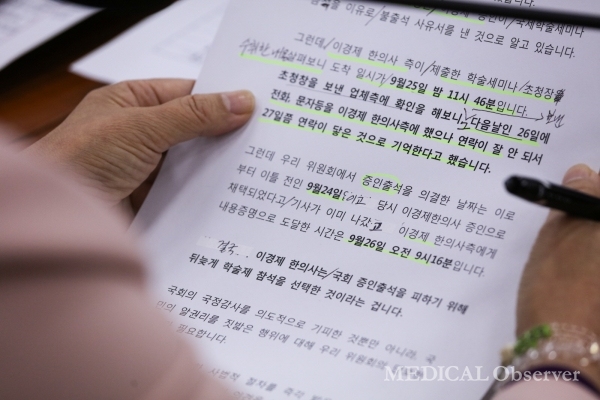 이유로/불출석 사유서를 낸 것으로 알고 있습니다.
그런데/이경제 한의사 측이/제출한 학술세미나/초청장
살펴보니 도착 일시가/9월25일 밤 11시 46분입니다.
초청장을 보낸 업체측에 확인을 해보니/다음날인 26일에
전화, 문자등을 이경제 한의사측에 했으나 연락이 잘 안 되서
27일쯤 연락이 닿은 것으로 기억한다고 했습니다.
그런데 우리 위원회에서 증인출석을 의결한 날짜는 이로
부터 이틀 전인 9월24일 당시 이경제한의사 증인으로
채택되었다고/기사가 이미 나갔고 이경제 한의사측에게
내용증명으로 도달한 시간은 9월26일 오전 9시16분입니다.
결국 이경제 한의사는/국회 증인출석을 피하기 위해
뒤늦게 학술제 참석을 선택한 것이라는 겁니다.
국회의 국정감사를 의도적으로 기피한 것뿐만 아니라, 국
민의 알권리를 짓밟은 행위에 대해 우리 위원회
필요합니다.
사법적 절차를 즉각
MEDICAL Observer